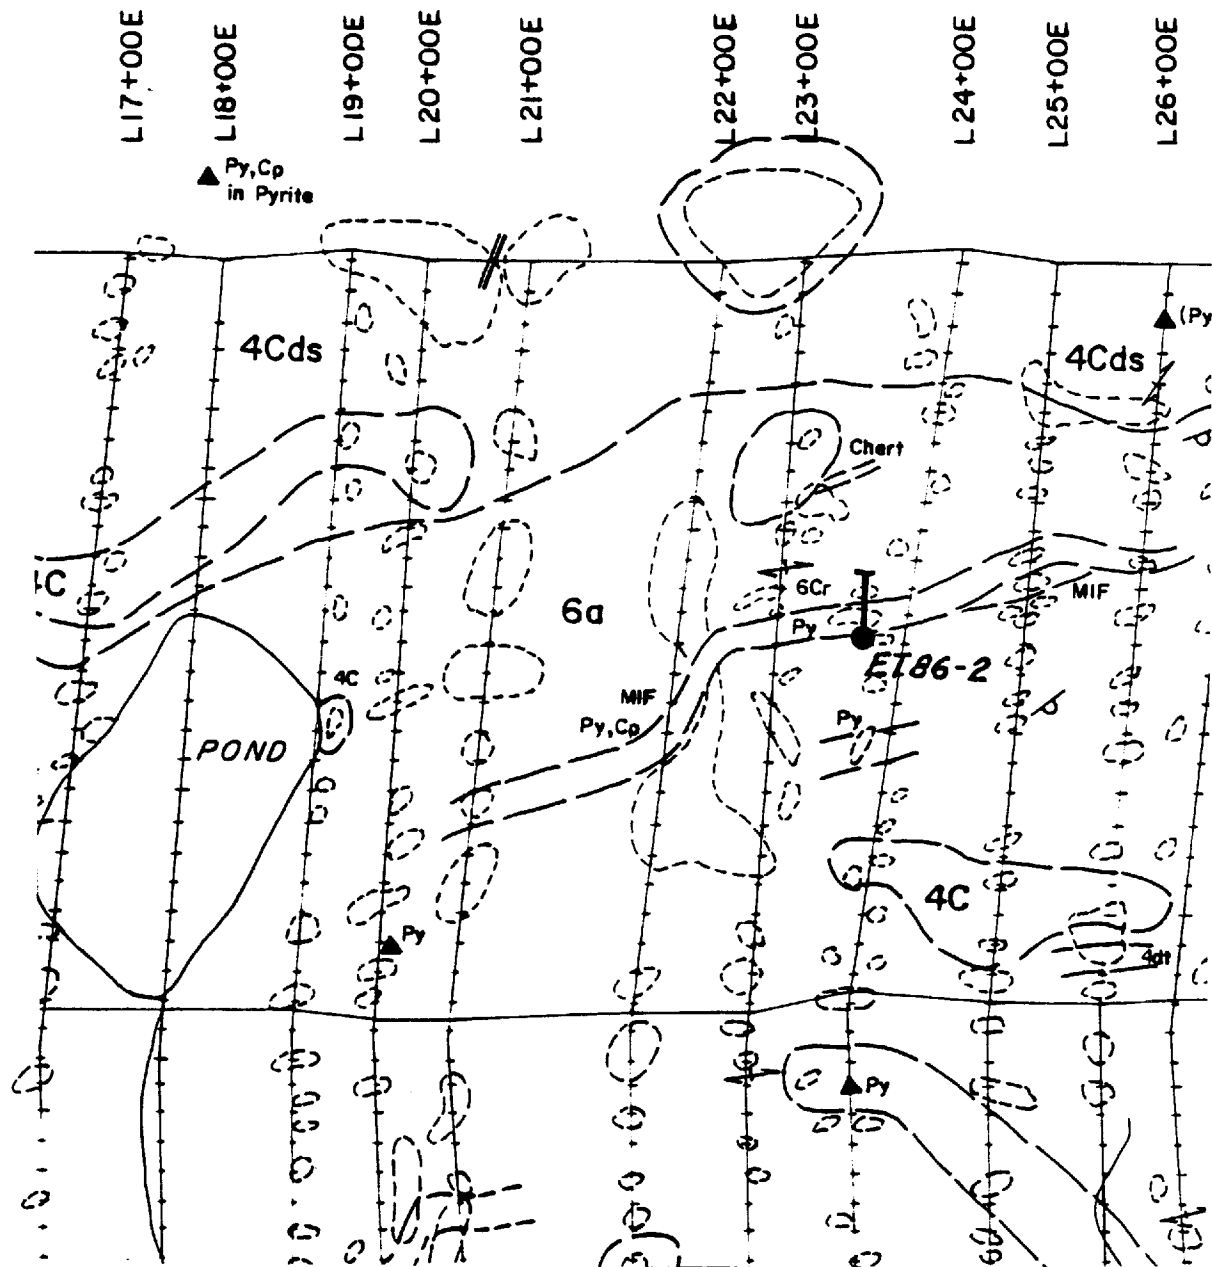 L17+00E
L18+00E
L19+00E
L20+00E
L21+00E
L22+00E
L23+00E
L24+00E
L25+00E
L26+00E
Py,Cp
in Pyrite
(Py
4Cds
4Cds
Chert
4C
6a
6Cr
MIF
Py
ET86-2
4C
MIF
Py,Cp
Py
POND
4C
Py
4dt
Py